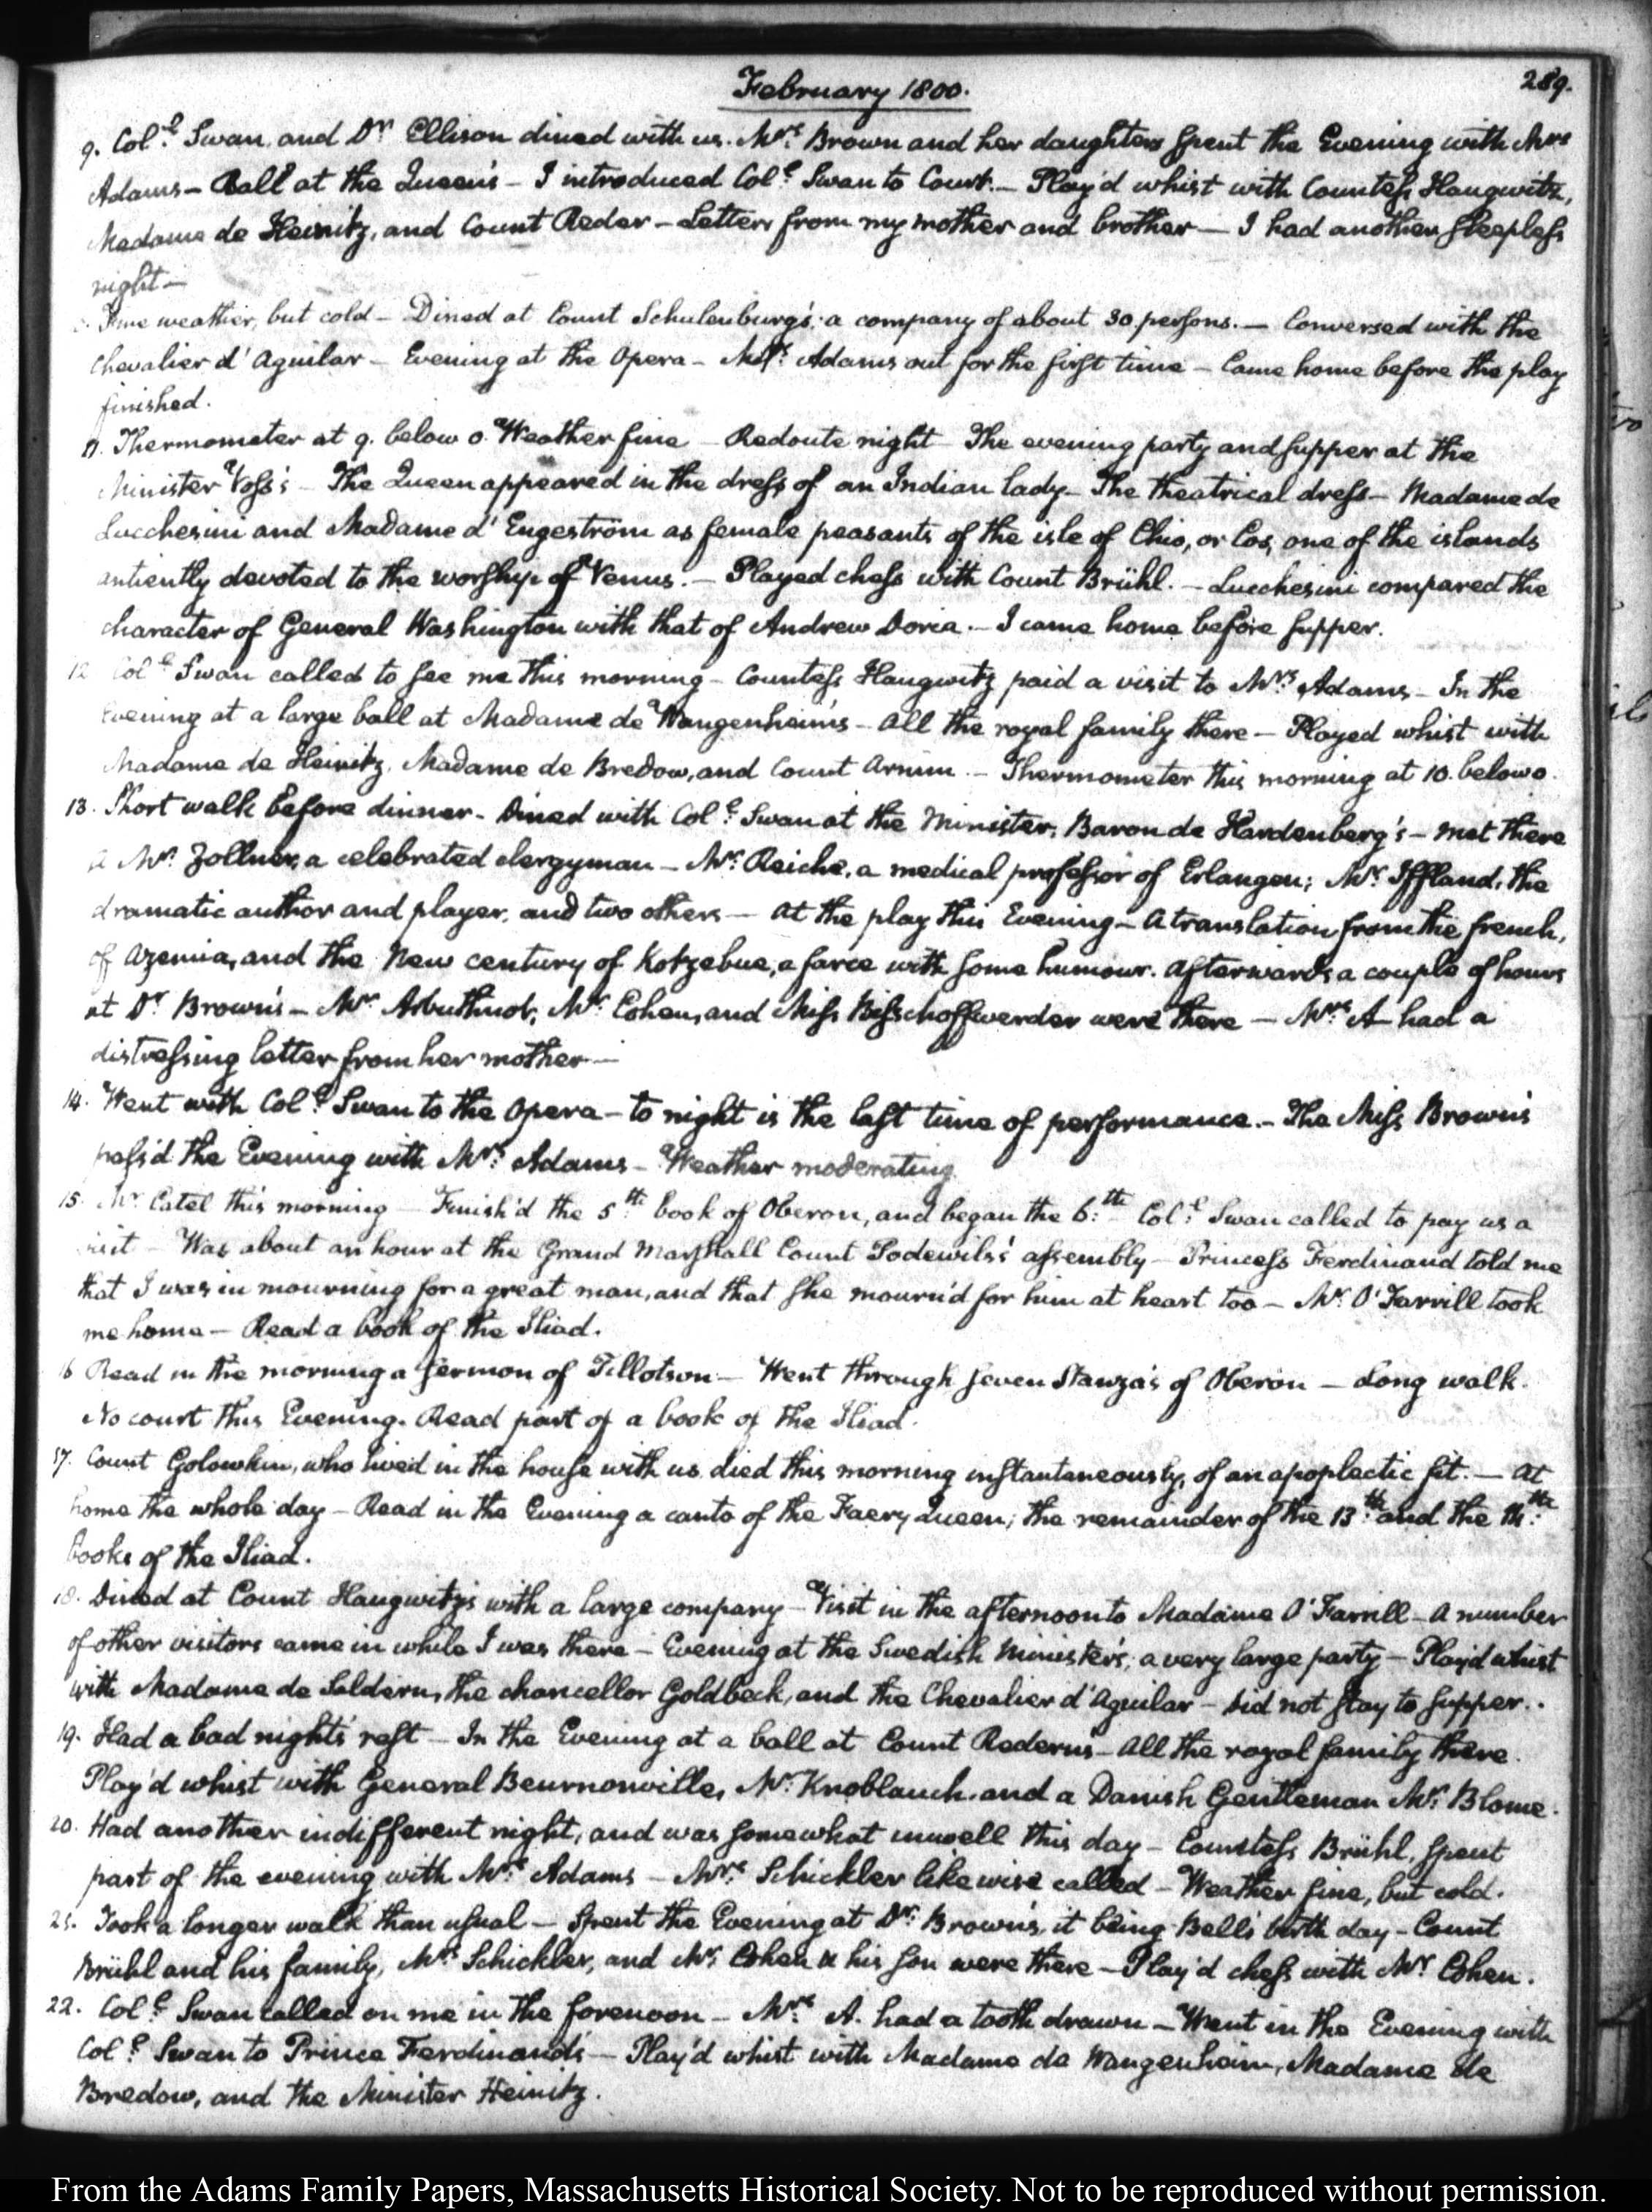 February 1800.
289.
9. Col.l Swan, and Dr Ellison dined with us. Mrs. Brown and her daughters spent the Evening with Mrs
Adams — Ball at the Queen's — I introduced Col.l Swan to Court. — Play'd whist with Countess Haugwitz,
Madame de Heinitz, and Count Reder — Letters from my mother and brother — I had another sleepless
night —
Fine weather, but cold — Dined at Count Schulenburg's; a company of about 30 persons. — Conversed with the
Chevalier d'Aguilar — Evening at the Opera — Mrs. Adams out for the first time — Came home before the play
finished.
11. Thermometer at 9. below 0. Weather fine — Redoute night — The evening party and supper at the
Minister Voss's — The Queen appeared in the dress of an Indian lady — The theatrical dress — Madame de
Lucchesini and Madame d'Engeström as female peasants of the isle of Chio, or Cos, one of the islands
antiently devoted to the worship of Venus. — Played chess with Count Brühl. — Lucchesini compared the
character of General Washington with that of Andrew Doria. — I came home before supper.
12 Col.l Swan called to see me this morning — Countess Haugwitz paid a visit to Mrs. Adams — In the
Evening at a large ball at Madame de Wangenheim's — All the royal family there — Played whist with
Madame de Heinitz, Madame de Bredow, and Count Arnim — Thermometer this morning at 10. below 0.
13. Short walk before dinner — Dined with Col.l Swan at the Minister, Baron de Hardenberg's — Met there
a Mr. Zollner, a celebrated clergyman — Mr. Reiche, a medical professor of Erlangen; Mr. Iffland, the
dramatic author and player, and two others — At the play this Evening — A translation from the french,
of Azemia, and the New century of Kotzebue, a farce with some humour. Afterwards a couple of hours
at Dr Brown's — Mr. Arbuthnot, Mr. Cohen, and Miss Bisschoffwerder were there — Mrs. A had a
distressing letter from her mother —
14. Went with Col.l Swan to the Opera — to night is the last time of performance. — The Miss Brown's
pass'd the Evening with Mrs. Adams — Weather moderating.
15. Mr Catel this morning — Finish'd the 5.th book of Oberon, and began the 6.th Col.l Swan called to pay us a
visit — Was about an hour at the Grand Marshall Count Podewils's assembly — Princess Ferdinand told me
that I was in mourning for a great man, and that she mourn'd for him at heart too — Mr. O'Farrill took
me home — Read a book of the Iliad.
16 Read in the morning a sermon of Tillotson — Went through seven Stanza's of Oberon — Long walk.
No court this Evening. Read part of a book of the Iliad.
17. Count Golowkin, who lived in the house with us died this morning instantaneously, of an apoplectic fit. — At
home the whole day — Read in the Evening a canto of the Faery Queen; the remainder of the 13.th and the 14.th
books of the Iliad.
18. Dined at Count Haugwitz's with a large company — Visit in the afternoon to Madame O'Farrill — A number
of other visitors came in while I was there — Evening at the Swedish Minister's; a very large party — Play'd whist
with Madame de Soldern, the chancellor Goldbeck, and the Chevalier d'Aguilar — Did not stay to supper.
19. Had a bad night's rest — In the Evening at a ball at Count Redern's — All the royal family there.
Play'd whist with General Beurnonville, Mr. Knoblauch, and a Danish Gentleman Mr. Blome.
20. Had another indifferent night, and was somewhat unwell this day — Countess Brühl, spent
part of the evening with Mrs. Adams — Mrs. Schickler likewise called — Weather fine, but cold.
21. Took a longer walk than usual — Spent the Evening at Dr. Brown's, it being Bell's birth day — Count
Brühl and his family, Mrs. Schickler, and Mr. Cohen & his son were there — Play'd chess with Mr Cohen.
22. Col.l Swan called on me in the forenoon — Mrs. A. had a tooth drawn — Went in the Evening with
Col.l Swan to Prince Ferdinand's — Play'd whist with Madame de Wangenheim, Madame de
Bredow, and the Minister Heinitz.
From the Adams Family Papers, Massachusetts Historical Society. Not to be reproduced without permission.